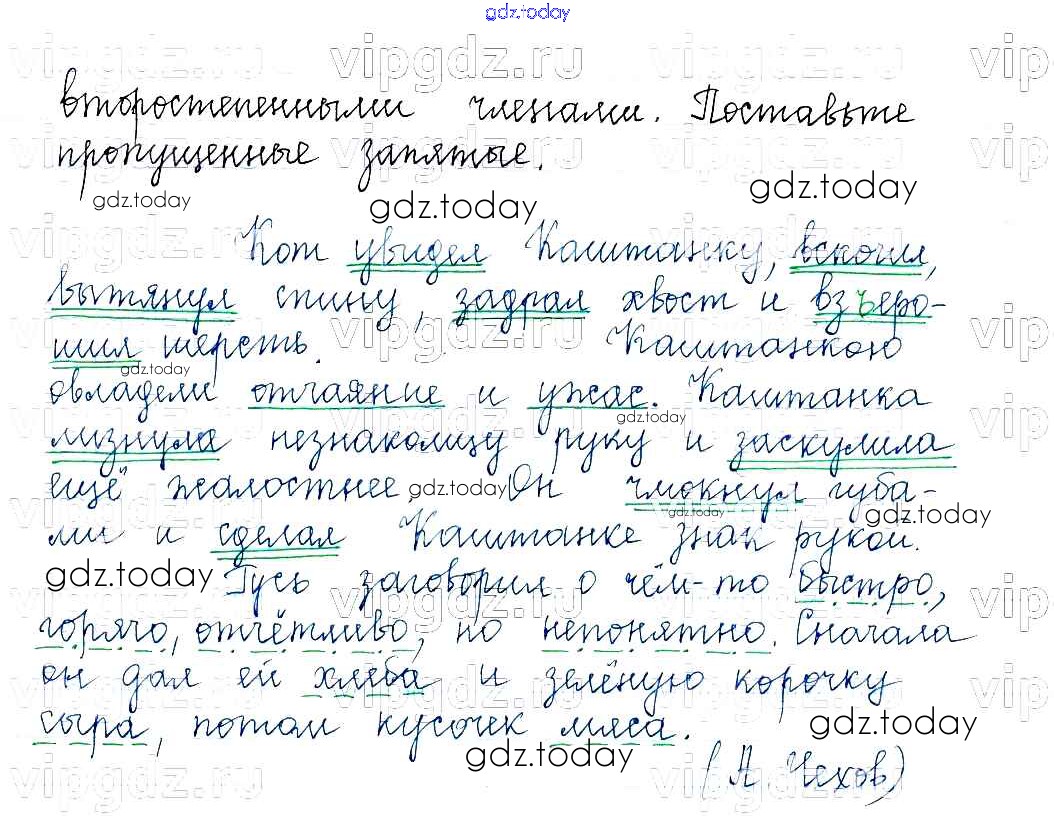 gdz.today
второстепенными членами. Поставьте
пропущенные запятые.
Кот увидел Каштанку, вскочил,
вытянул спину, задрал хвост и взъеро-
шил шерсть. Каштанкою
овладели отчаяние и ужас. Каштанка
лизнула незнакомцу руку и заскулила
ещё жалостнее. Он чмокнул губа-
ми и сделал Каштанке знак рукой.
Гусь заговорил о чём-то быстро,
горячо, отчётливо, но непонятно. Сначала
он дал ей хлеба и зелёную корочку
сыра, потом кусочек мяса.
(А. Чехов)